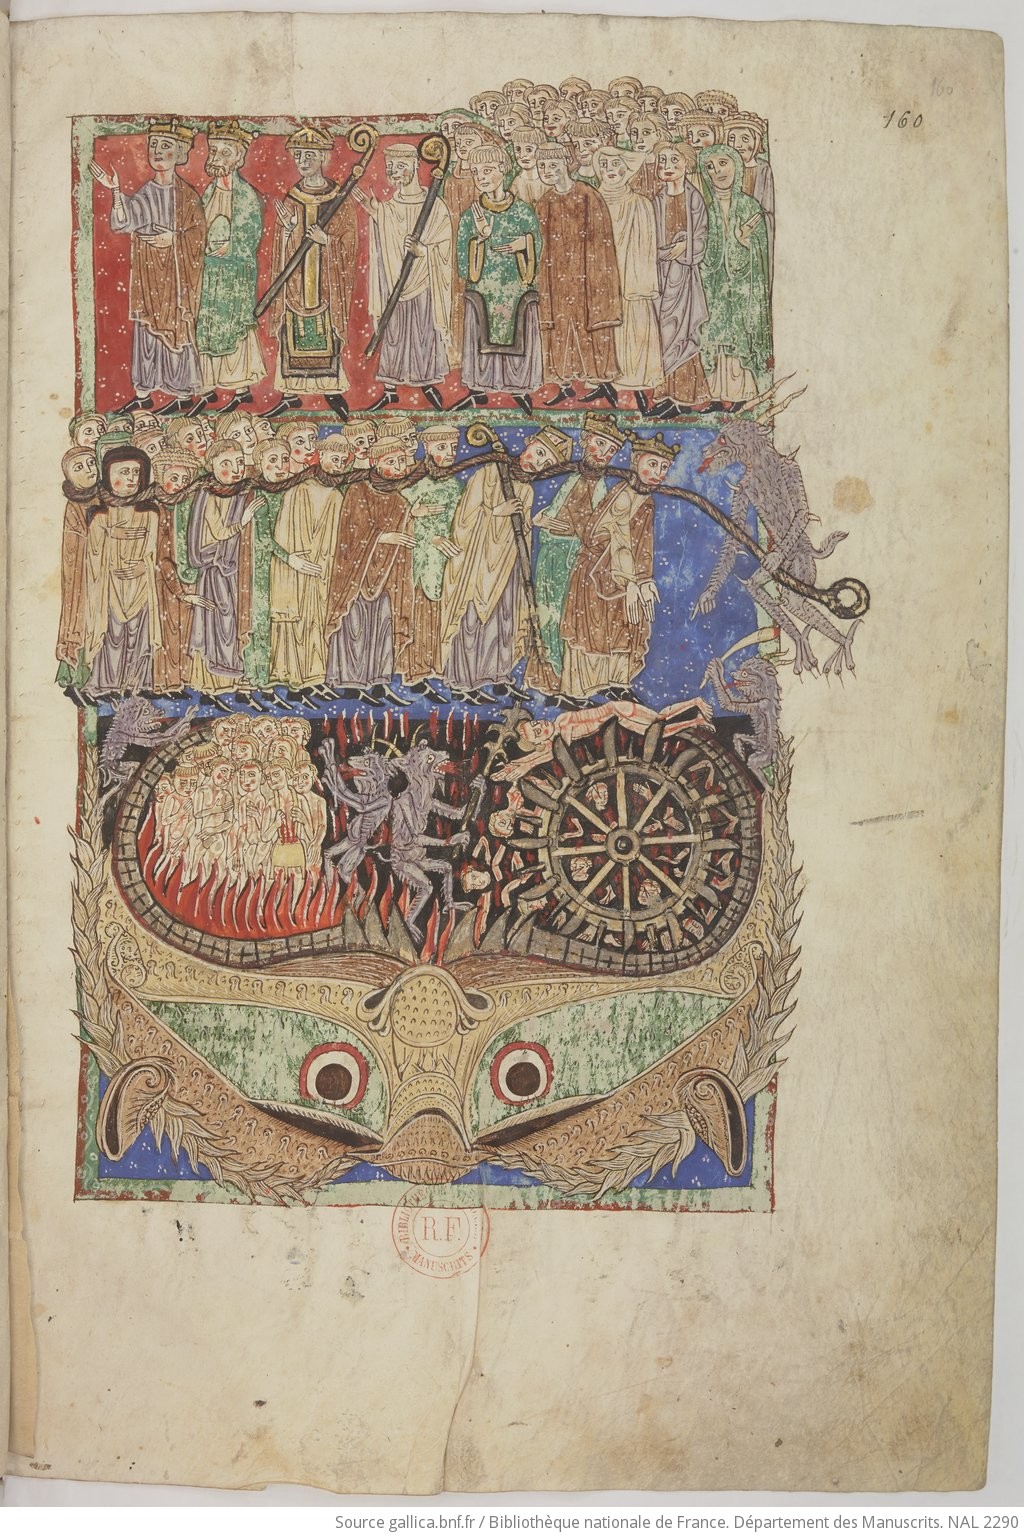 160
160
BIBLIOTHÈQUE
R.F.
MANUSCRITS
Source gallica.bnf.fr / Bibliothèque nationale de France. Département des Manuscrits. NAL 2290